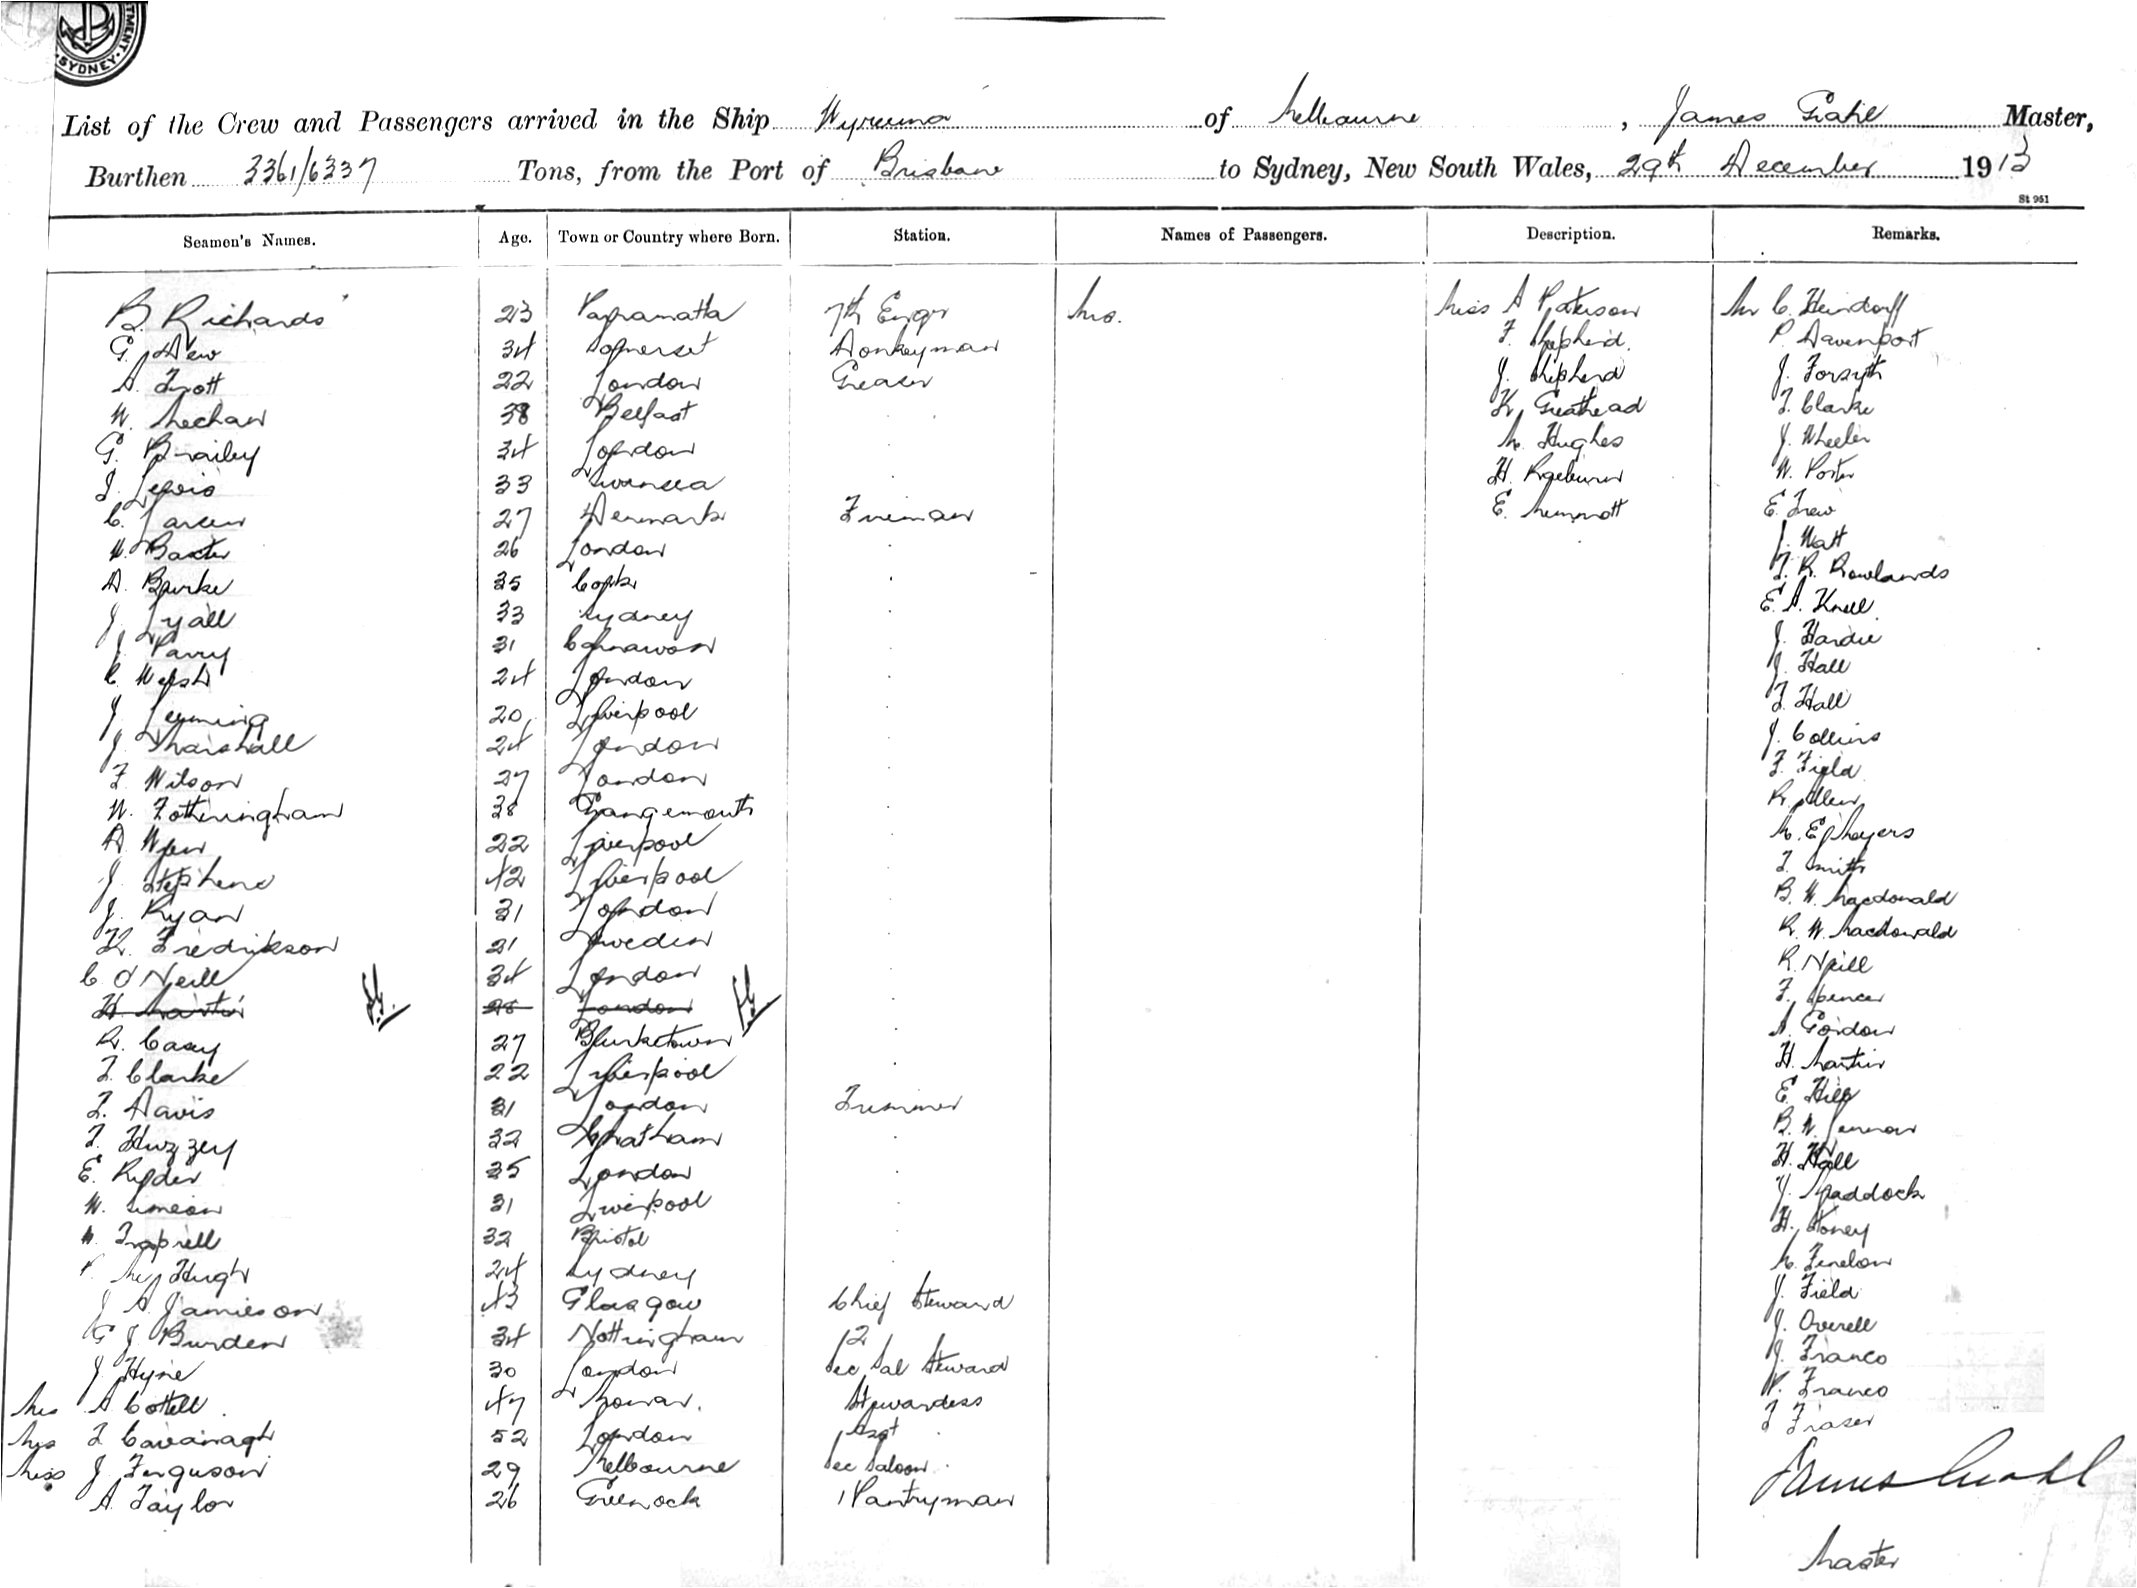 TMENT. SYDNEY.
List of the Crew and Passengers arrived in the Ship Wyreema of Melbourne, James Grahl Master,
Burthen 3361/6337 Tons, from the Port of Brisbane to Sydney, New South Wales, 29th December 1913
St 951
Seamen's Names. Age. Town or Country where Born. Station. Names of Passengers. Description. Remarks.
B. Richards 23 Parramatta 7th Engr Miss A Paterson Mr C. Heindorff
G. Dew 34 Somerset Donkeyman F. Shepherd. P. Davenport
A. Trott 22 London Greaser J. Shepherd J. Forsyth
W. Meehan 38 Belfast K. Greathead T. Clarke
G. Brailey 34 London M. Hughes J. Wheeler
J. Lewis 33 Swansea H. Raeburn W. Porter
C. Larsen 27 Denmark Fireman E. Memmott E. Trew
W. Baxter 26 London J. Watt
A. Burke 35 Cork T. R. Rowlands
J. Lyall 33 Sydney E. A. Knell
J. Parry 31 Carnarvon J. Hardie
C. Welsh 24 London J. Hall
J. Leeming 20 Liverpool T. Hall
J. Marshall 24 London J. Collins
F. Wilson 27 London F. Field
W. Fotheringham 38 Grangemouth R. Allen
A. 22 Liverpool M. E. Mayers
J. Stephens 42 Liverpool T. Smith
J. Ryan 31 London B. W. Macdonald
K. Fredrikson 21 Sweden R. W. Macdonald
C. O'Neill 34 London R. Neill
H. Martin 28 London F. Spencer
R. Casey 27 Burketown A. Gordon
T. Clarke 22 Liverpool H. Martin
T. Davis 31 London Trimmer E. Hill
T. Huzzey 32 Chatham B. W.
E. Ryder 25 London H. Hall
W. Simeon 31 Liverpool J. Maddock
W. Traprell 32 Bristol H. Stoney
P. McHugh 24 Sydney M. Fenelon
J. A. Jamieson 43 Glasgow Chief Steward J. Field
G J. Burden 34 Nottingham 12 J. Overell
J Hyne 30 London Sec Sal Steward J. Franco
Mrs A Cottell 47 Stewardess V. Franco
Mrs T Cavanagh 52 London Asst T Fraser
Miss J. Ferguson 29 Melbourne Sec Saloon
A. Taylor 26 Greenock 1 Pantryman
James Grahl
Master